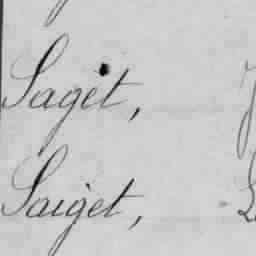 Saget,
Saiget,